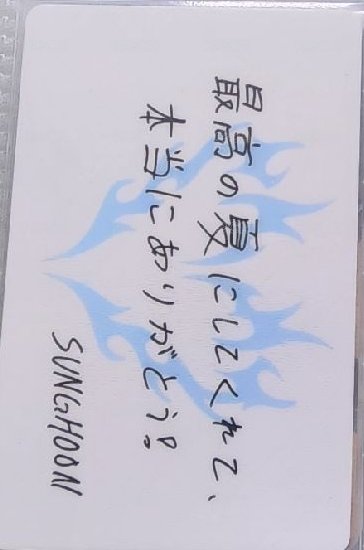 最高の夏にしてくれて、
本当にありがとう!
SUNGHOON